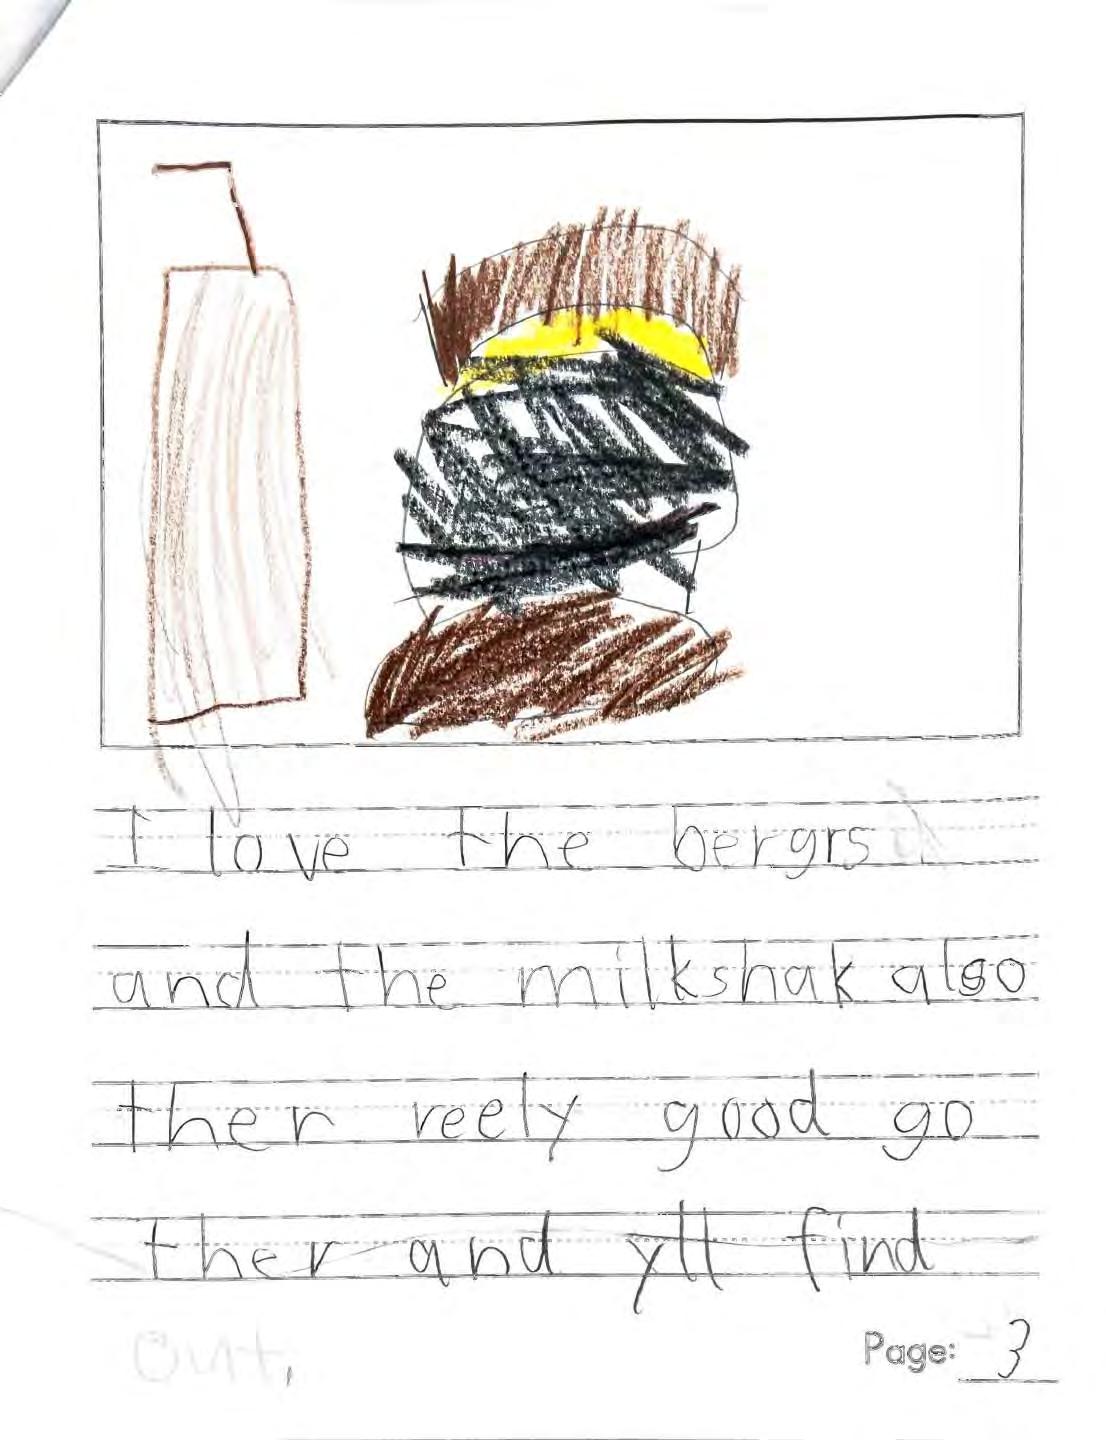 I love the bergrs
and the milkshak also
ther reely good go
ther and yll find
out.
Page: 3